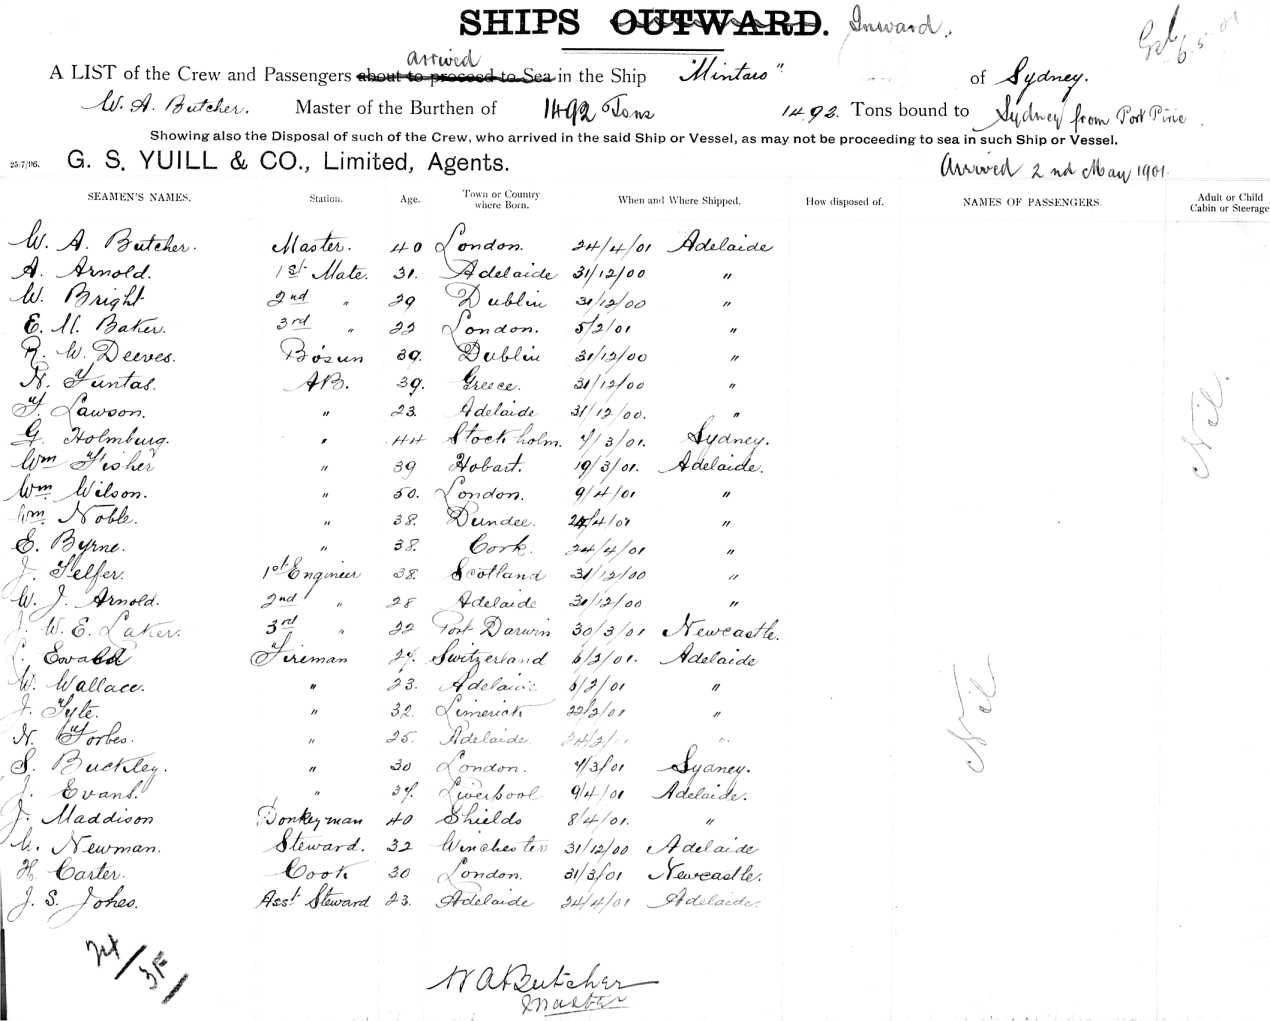 SHIPS OUTWARD. Inward.
arrived
A LIST of the Crew and Passengers about to proceed to Sea in the Ship "Mintaro" of Sydney.
W. A. Butcher. Master of the Burthen of 1492 Tons 1492. Tons bound to Sydney from Port Pirie.
Showing also the Disposal of such of the Crew, who arrived in the said Ship or Vessel, as may not be proceeding to sea in such Ship or Vessel.
25/7/96. G. S. YUILL & CO., Limited, Agents. Arrived 2nd May 1901.
SEAMEN'S NAMES. Station. Age. Town or Country where Born. When and Where Shipped. How disposed of. NAMES OF PASSENGERS. Adult or Child Cabin or Steerage
W. A. Butcher. Master. 40 London. 24/4/01 Adelaide
A. Arnold. 1st Mate. 31. Adelaide 31/12/00 "
W. Bright 2nd " 29 Dublin 31/12/00 "
E. H. Baker. 3rd " 22 London. 5/2/01 "
R. W. Deeves. Bosun 39. Dublin 31/12/00 "
N. Funtas. AB. 39. Greece. 31/12/00 "
F. Lawson. " 23. Adelaide 31/12/00. "
G. Holmburg. " 44 Stockholm. 4/3/01. Sydney.
Wm Fisher " 39 Hobart. 19/3/01. Adelaide.
Wm Wilson. " 50. London. 9/4/01 "
Wm Noble. " 38. Dundee. 24/4/01 "
E. Byrne. " 38. Cork. 24/4/01 "
J. Telfer. 1st Engineer 38. Scotland 31/12/00 "
W. J. Arnold. 2nd " 28 Adelaide 31/12/00 "
J. W. E. Laker. 3rd " 22 Port Darwin 30/3/01 Newcastle.
Ewald Fireman 27. Switzerland 6/2/01. Adelaide
W. Wallace. " 23. Adelaide 6/2/01 "
J. Tyte. " 32. Limerick 22/2/01 "
N. Forbes. " 25. Adelaide 24/2/01 "
S. Buckley. " 30 London. 4/3/01 Sydney.
J. Evans. " 37. Liverpool 9/4/01 Adelaide.
J. Maddison Donkeyman 40 Shields 8/4/01. "
Newman. Steward. 32 Winchester 31/12/00 Adelaide
H. Carter. Cook 30 London. 31/3/01 Newcastle.
J. S. Johes. Asst Steward 23. Adelaide 24/4/01 Adelaide.
Nil.
Nil
W A Butcher
Master